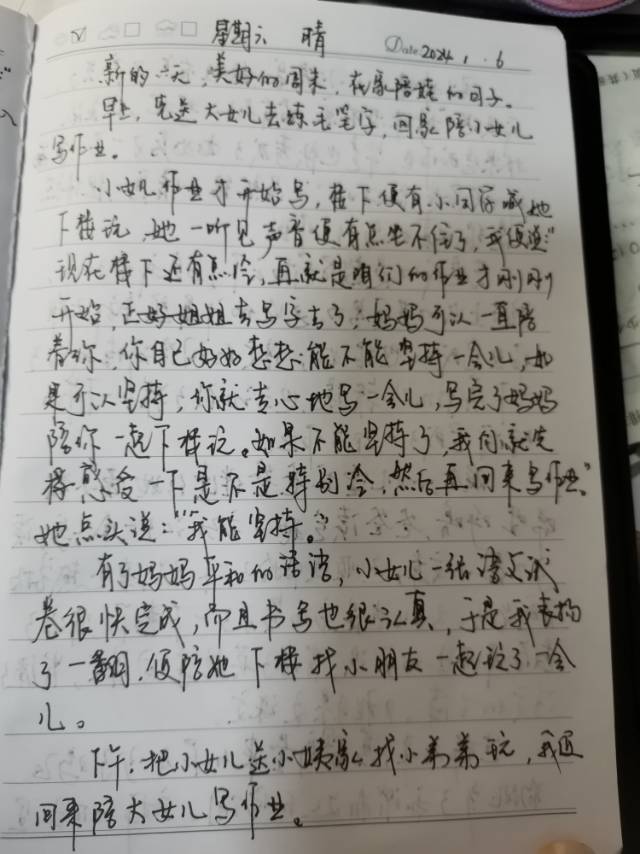 星期六 晴 Date 2024.1.6
新的一天,美好的周末,在家陪娃的日子。
早上,先送大女儿去练毛笔字,回家陪小女儿
写作业。
小女儿作业才开始写,楼下便有小同学喊她
下楼玩,她一听见声音便有点坐不住了,我便说:“
现在楼下还有点冷,再就是咱们的作业才刚刚
开始,正好姐姐去写字去了,妈妈可以一直陪
着你,你自己好好想想能不能坚持一会儿,如
是可以坚持,你就专心地写一会儿,写完了妈妈
陪你一起下楼玩。如果不能坚持了,我们就先
感受一下是不是特别冷,然后再回来写作业。”
她点头说:“我能坚持。”
有了妈妈平和的话语,小女儿一张语文试
卷很快完成,而且书写也很认真,于是我表扬
了一翻,便陪她下楼找小朋友一起玩了一会
儿。
下午,把小女儿送小姨家找小弟弟玩,我返
回来陪大女儿写作业。